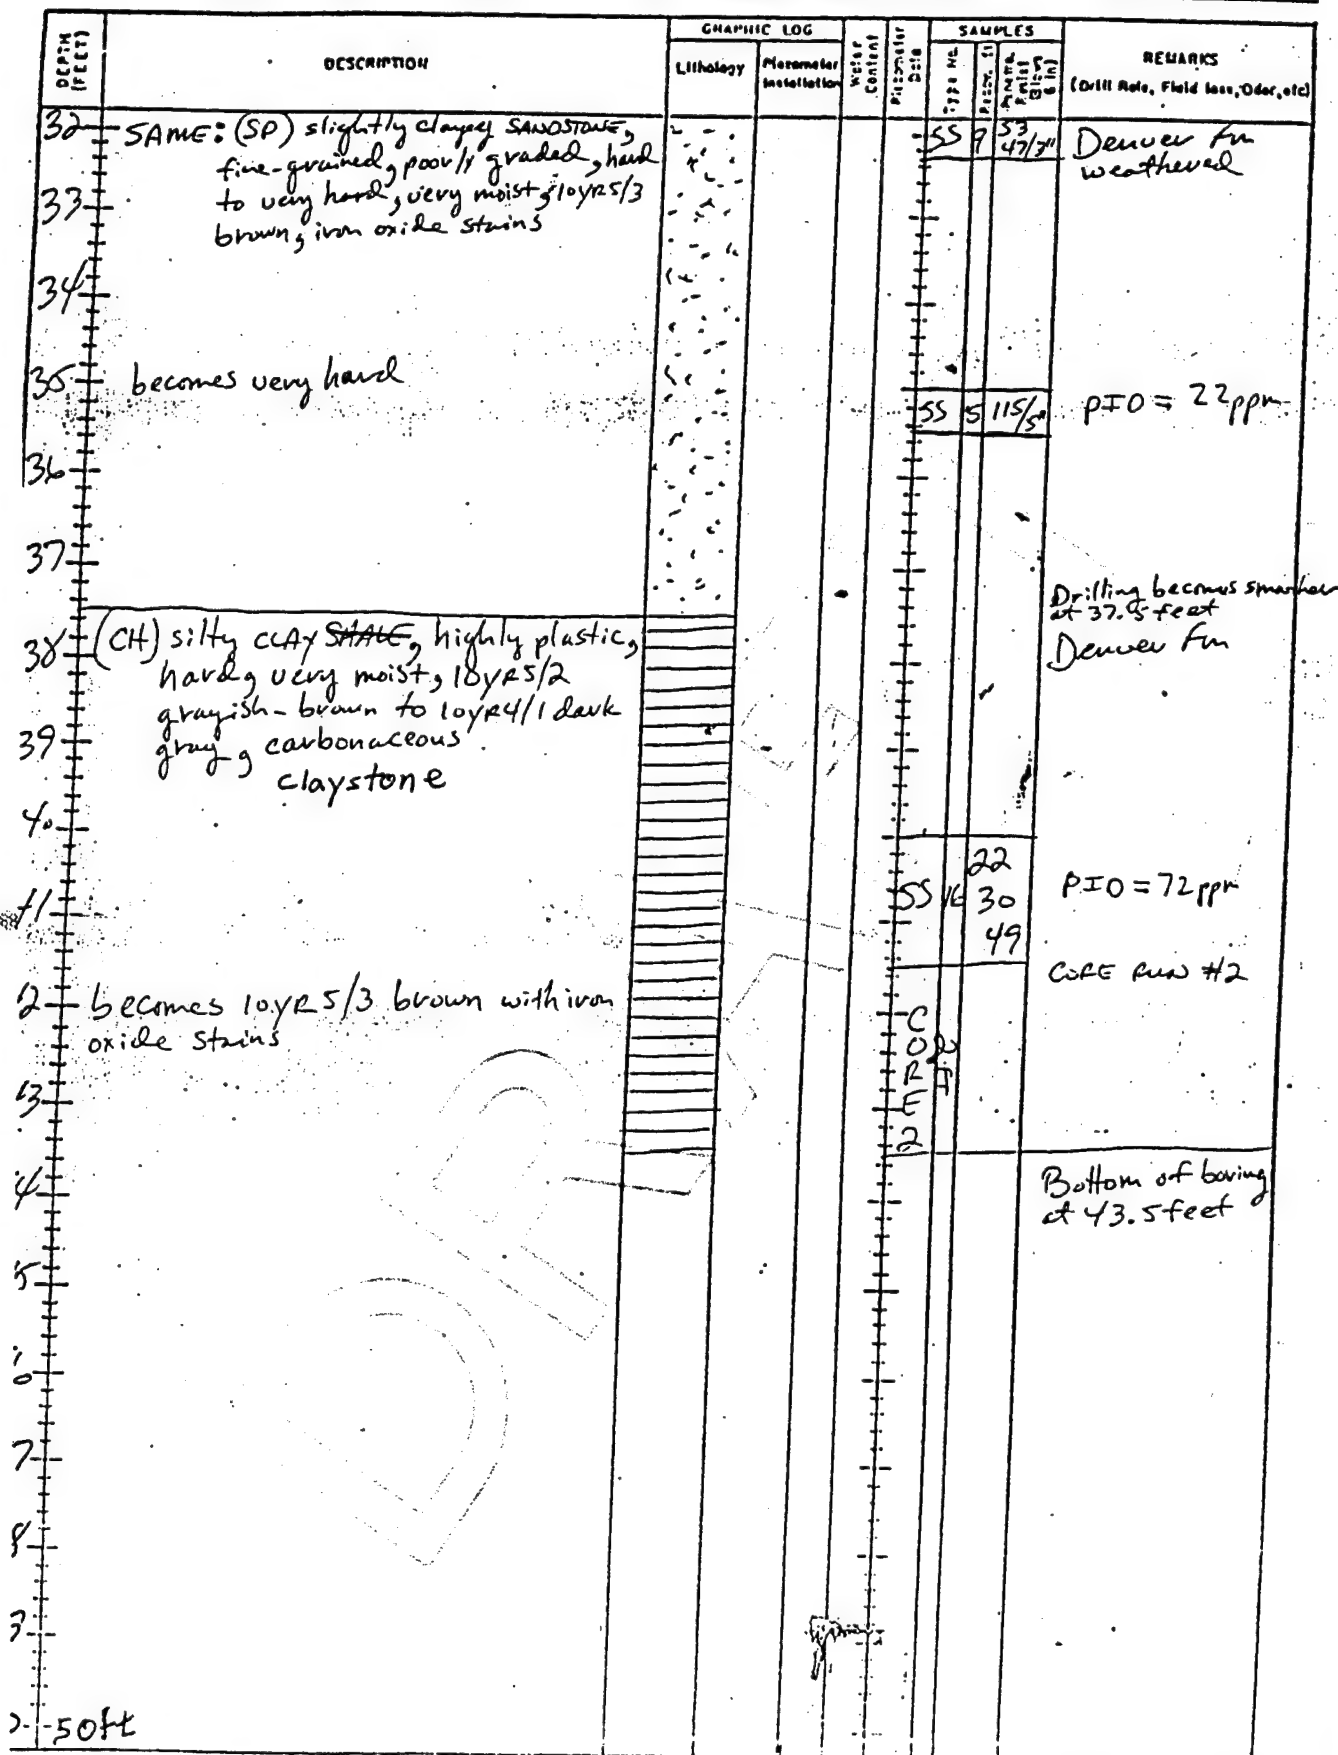 DEPTH (FEET)
DESCRIPTION
GRAPHIC LOG
Lithology
Piezometer Installation
Water Content
Piezometer Data
SAMPLES
Type No.
REMARKS
(Drill Rate, Fluid loss, Odor, etc)
32
SAME: (SP) slightly clayey SANDSTONE,
fine-grained, poorly graded, hard
to very hard, very moist, 10yR5/3
brown, iron oxide stains
SS 9 53
47/3"
Denver Fm
weathered
33
34
35
becomes very hard
SS 5 115/5"
PID = 22ppm
36
37
Drilling becomes smoother
at 37.5 feet
Denver Fm
38
(CH) silty CLAY SHALE, highly plastic,
hard, very moist, 10yR5/2
grayish-brown to 10yR4/1 dark
gray, carbonaceous
claystone
39
40
22
SS 16 30
49
PID = 72ppm
41
CORE RUN #2
2
becomes 10yR 5/3 brown with iron
oxide stains
CORE 2
3
Bottom of boring
at 43.5 feet
4
5
7
50ft
DRAFT